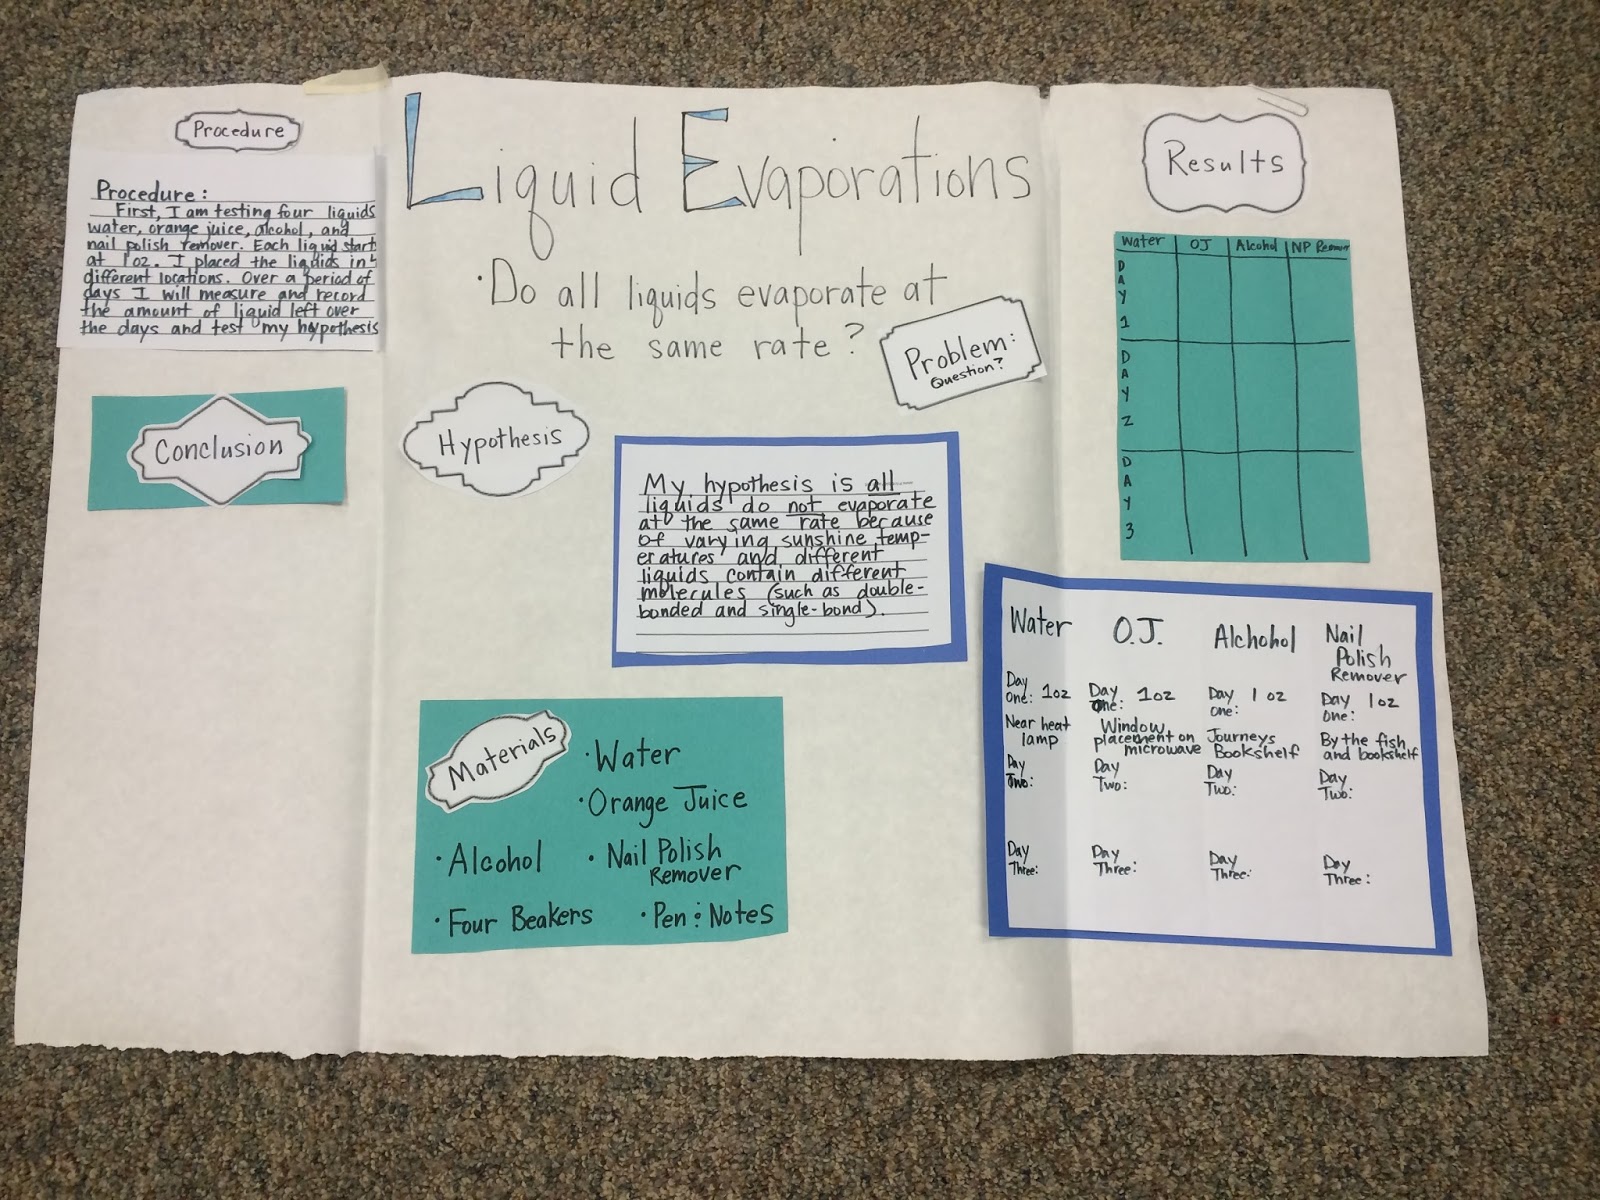 Procedure
Procedure:
First, I am testing four liquids
water, orange juice, alcohol, and
nail polish remover. Each liquid start
at 1 oz. I placed the liquids in 4
different locations. Over a period of
days I will measure and record
the amount of liquid left over
the days and test my hypothesis
Conclusion
Liquid Evaporations
· Do all liquids evaporate at
the same rate?
Problem:
Question?
Hypothesis
My hypothesis is all
liquids do not evaporate
at the same rate because
of varying sunshine temp-
eratures and different
liquids contain different
molecules (such as double-
bonded and single-bond).
Materials
· Water
· Orange Juice
· Alcohol
· Nail Polish
Remover
· Four Beakers
· Pen & Notes
Results
Water OJ Alcohol NP Remover
DAY 1
DAY 2
DAY 3
Water
Day
One: 1oz
Near heat
lamp
Day
Two:
Day
Three:
O.J.
Day
One: 1oz
Window
placement on
microwave
Day
Two:
Day
Three:
Alchohol
Day 1 oz
One:
Journeys
Bookshelf
Day
Two:
Day
Three:
Nail
Polish
Remover
Day 1oz
One:
By the fish
and bookshelf
Day
Two:
Day
Three: